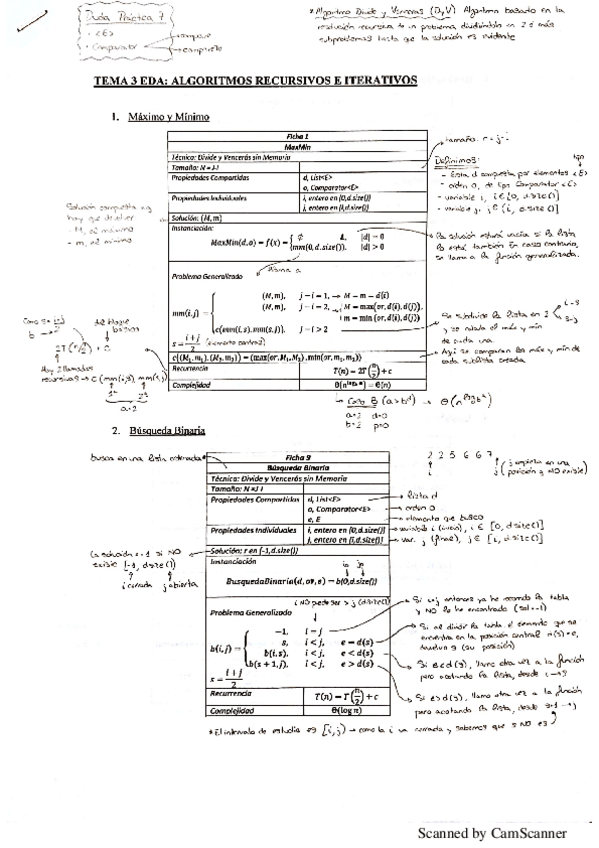 Duda Práctica 7
· <E>
· Comparator
compare
compareTo
* Algoritmo Divide y Vencerás (DyV) Algoritmo basado en la
resolución recursiva de un problema, dividiéndolo en 2 ó más
subproblemas hasta que la solución es evidente
TEMA 3 EDA: ALGORITMOS RECURSIVOS E ITERATIVOS
1. Máximo y Mínimo
Ficha 1
MaxMin
Técnica: Divide y Vencerás sin Memoria
Tamaño: N = J-I
Propiedades Compartidas d, List<E>
o, Comparator<E>
Propiedades Individuales i, entero en [0,d.size())
j, entero en [i,d.size()]
Solución: (M, m)
Instanciación:
MaxMin(d,o) = f(x) = { ∅ |d| = 0
mm(0,d.size()), |d| > 0
Problema Generalizado
mm(i,j) = { (M,m), j − i = 1, → M = m = d(i)
(M,m), j − i = 2, → M = max(or,d(i),d(j)),
m = min(or,d(i),d(j))
c(mm(i,s),mm(s,j)), j − i > 2
s = i + j / 2 (elemento central)
c((M₁,m₁),(M₂,m₂)) = (max(or,M₁,M₂),min(or,m₁,m₂))
Recurrencia T(n) = 2T(n/2) + c
Complejidad Θ(n^log₂ 2) = Θ(n)
tamaño: n = j-i
Definimos: tipo
- Lista d compuesta por elementos <E>
- orden o, de tipo Comparator<E>
- variable i, i∈[0, d.size())
- variable j, j∈[i, d.size()]
Solución compuesta xq
hay que devolver
- M, el máximo
- m, el mínimo
la solución estará vacía si la lista
lo está también. En caso contrario,
se llama a la función generalizada.
llama a
Se subdivide la lista en 2
i-s
s-j
y se calcula el máx y mín
de cada una
Aquí se comparan los máx y mín de
cada sublista creada.
2. Búsqueda Binaria
busca en una lista ordenada
Ficha 9
Búsqueda Binaria
Técnica: Divide y Vencerás sin Memoria
Tamaño: N = J-I
Propiedades Compartidas d, List<E>
o, Comparator<E>
e, E
Propiedades Individuales i, entero en [0,d.size())
j, entero en [i,d.size()]
Solución: r en [-1,d.size())
Instanciación
BusquedaBinaria(d,or,e) = b(0,d.size())
Problema Generalizado
b(i,j) = { −1, i = j
s, i < j, e = d(s)
b(i,s), i < j, e < d(s)
b(s + 1,j), i < j, e > d(s)
s = i + j / 2
Recurrencia T(n) = T(n/2) + c
Complejidad Θ(log n)
2 2 5 6 6 7
lista d
orden o
elemento que busco
variable i (inicio), i ∈ [0, d.size())
var. j (final), j ∈ [i, d.size()]
la solución = -1 si NO
existe [-1, d.size())
i cerrada j abierta
Si i=j entonces ya he recorrido la tabla
y NO lo he encontrado (sol = -1)
Si al dividir la tabla el elemento que se
encuentra en la posición central d(s) = e,
devuelvo s (su posición)
Si e<d(s), llamo otra vez a la función
pero acotando la lista, desde i → s
Si e>d(s), llamo otra vez a la función
pero acotando la lista, desde s+1 → j
* El intervalo de estudio es [i,j)
Scanned by CamScanner